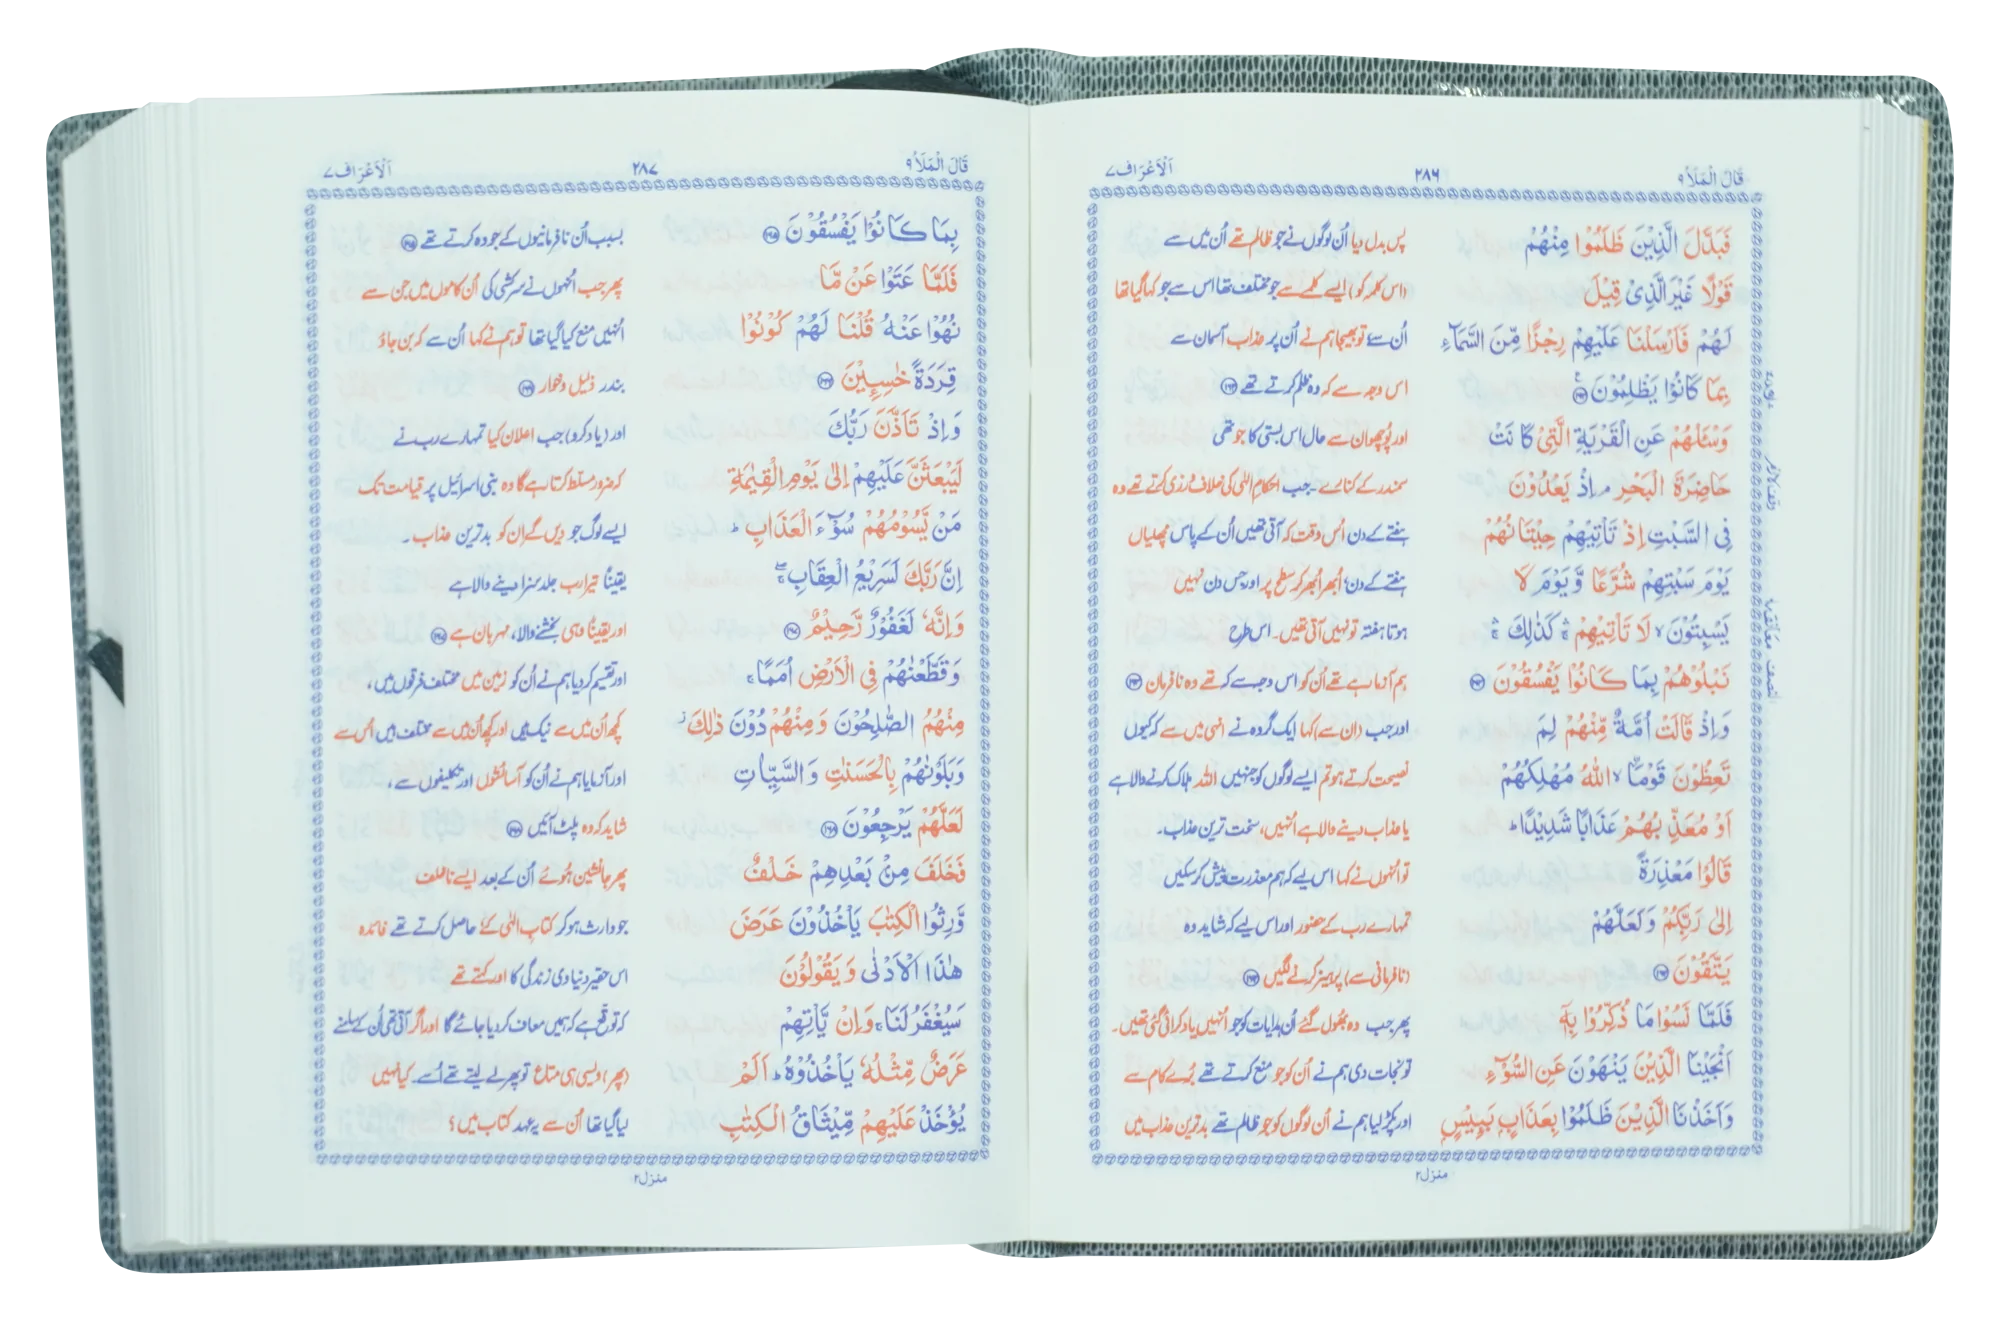 قَالَ الْمَلَأُ ٩ ٢٨٦ اَلْاَعْرَاف ٧
فَبَدَّلَ الَّذِيْنَ ظَلَمُوْا مِنْهُمْ پس بدل دیا اُن لوگوں نے جو ظالم تھے اُن میں سے
قَوْلًا غَيْرَ الَّذِىْ قِيْلَ (اس کلمہ کو) ایسے کلمے سے جو مختلف تھا اس سے جو کہا گیا تھا
لَهُمْ فَاَرْسَلْنَا عَلَيْهِمْ رِجْزًا مِّنَ السَّمَآءِ اُن سے تو بھیجا ہم نے اُن پر عذاب آسمان سے
بِمَا كَانُوْا يَظْلِمُوْنَ ۝١٦٢ اس وجہ سے کہ وہ ظلم کرتے تھے ۝١٦٢
وَسْئَلْهُمْ عَنِ الْقَرْيَةِ الَّتِىْ كَانَتْ اور پُوچھو ان سے حال اس بستی کا جو تھی
حَاضِرَةَ الْبَحْرِ ۘ اِذْ يَعْدُوْنَ سمندر کے کنارے۔ جب احکامِ الٰہی کی خلاف ورزی کرتے تھے وہ
فِى السَّبْتِ اِذْ تَاْتِيْهِمْ حِيْتَانُهُمْ ہفتے کے دن اُس وقت کہ آتی تھیں اُن کے پاس مچھلیاں
يَوْمَ سَبْتِهِمْ شُرَّعًا وَّيَوْمَ لَا ہفتے کے دن، اُبھر اُبھر کر سطح پر اور جس دن نہیں
يَسْبِتُوْنَ ۙ لَا تَاْتِيْهِمْ ۛ كَذٰلِكَ ۛ ہوتا ہفتہ تو نہیں آتی تھیں۔ اس طرح
نَبْلُوْهُمْ بِمَا كَانُوْا يَفْسُقُوْنَ ۝١٦٣ ہم آزماتے تھے اُن کو اس وجہ سے کہ تھے وہ نافرمان ۝١٦٣
وَاِذْ قَالَتْ اُمَّةٌ مِّنْهُمْ لِمَ اور جب (ان سے) کہا ایک گروہ نے انہی میں سے کہ کیوں
تَعِظُوْنَ قَوْمًا ۙ اللّٰهُ مُهْلِكُهُمْ نصیحت کرتے ہو تم ایسے لوگوں کو جنہیں اللہ ہلاک کرنے والا ہے
اَوْ مُعَذِّبُهُمْ عَذَابًا شَدِيْدًا ؕ یا عذاب دینے والا ہے اُنہیں، سخت ترین عذاب۔
قَالُوْا مَعْذِرَةً تو اُنہوں نے کہا اس لیے کہ ہم معذرت پیش کر سکیں
اِلٰى رَبِّكُمْ وَلَعَلَّهُمْ تمہارے رب کے حضور اور اس لیے کہ شاید وہ
يَتَّقُوْنَ ۝١٦٤ (نافرمانی سے) پرہیز کرنے لگیں ۝١٦٤
فَلَمَّا نَسُوْا مَا ذُكِّرُوْا بِهٖٓ پھر جب وہ بھُول گئے اُن ہدایات کو جو اُنہیں یاد کرائی گئی تھیں۔
اَنْجَيْنَا الَّذِيْنَ يَنْهَوْنَ عَنِ السُّوْٓءِ تو نجات دی ہم نے اُن کو جو منع کرتے تھے بُرے کام سے
وَاَخَذْنَا الَّذِيْنَ ظَلَمُوْا بِعَذَابٍۭ بَئِيْسٍۭ اور پکڑ لیا ہم نے اُن لوگوں کو جو ظالم تھے بدترین عذاب میں
منزل ٢
قَالَ الْمَلَأُ ٩ ٢٨٧ اَلْاَعْرَاف ٧
بِمَا كَانُوْا يَفْسُقُوْنَ ۝١٦٥ بسبب اُن نافرمانیوں کے جو وہ کرتے تھے ۝١٦٥
فَلَمَّا عَتَوْا عَنْ مَّا پھر جب اُنہوں نے سرکشی کی اُن کاموں میں جن سے
نُهُوْا عَنْهُ قُلْنَا لَهُمْ كُوْنُوْا اُنہیں منع کیا گیا تھا تو ہم نے کہا اُن سے کہ بن جاؤ
قِرَدَةً خٰسِئِيْنَ ۝١٦٦ بندر ذلیل و خوار ۝١٦٦
وَاِذْ تَاَذَّنَ رَبُّكَ اور (یاد کرو) جب اعلان کیا تمہارے رب نے
لَيَبْعَثَنَّ عَلَيْهِمْ اِلٰى يَوْمِ الْقِيٰمَةِ کہ ضرور مسلط کرتا رہے گا وہ بنی اسرائیل پر قیامت تک
مَنْ يَّسُوْمُهُمْ سُوْٓءَ الْعَذَابِ ؕ ایسے لوگ جو دیں گے اِن کو بدترین عذاب۔
اِنَّ رَبَّكَ لَسَرِيْعُ الْعِقَابِ ۖۚ یقیناً تیرا رب جلد سزا دینے والا ہے
وَاِنَّهٗ لَغَفُوْرٌ رَّحِيْمٌ ۝١٦٧ اور یقیناً وہی بخشنے والا، مہربان ہے ۝١٦٧
وَقَطَّعْنٰهُمْ فِى الْاَرْضِ اُمَمًا ۚ اور تقسیم کر دیا ہم نے اُن کو زمین میں مختلف فرقوں میں،
مِنْهُمُ الصّٰلِحُوْنَ وَمِنْهُمْ دُوْنَ ذٰلِكَ ز کچھ اُن میں سے نیک ہیں اور کچھ اُن میں سے مختلف ہیں اُس سے
وَبَلَوْنٰهُمْ بِالْحَسَنٰتِ وَالسَّيِّاٰتِ اور آزمایا ہم نے اُن کو آسائشوں اور تکلیفوں سے،
لَعَلَّهُمْ يَرْجِعُوْنَ ۝١٦٨ شاید کہ وہ پلٹ آئیں ۝١٦٨
فَخَلَفَ مِنْۢ بَعْدِهِمْ خَلْفٌ پھر جانشین ہوئے اُن کے بعد ایسے ناخلف
وَّرِثُوا الْكِتٰبَ يَاْخُذُوْنَ عَرَضَ جو وارث ہو کر کتابِ الٰہی کے حاصل کرتے تھے فائدہ
هٰذَا الْاَدْنٰى وَيَقُوْلُوْنَ اس حقیر دنیاوی زندگی کا اور کہتے تھے
سَيُغْفَرُ لَنَا ۚ وَاِنْ يَّاْتِهِمْ کہ توقع ہے کہ ہمیں معاف کر دیا جائے گا اور اگر آتی تھی اُن کے سامنے
عَرَضٌ مِّثْلُهٗ يَاْخُذُوْهُ ؕ اَلَمْ (پھر) ویسی ہی متاع تو پھر لے لیتے تھے اُسے۔ کیا نہیں
يُؤْخَذْ عَلَيْهِمْ مِّيْثَاقُ الْكِتٰبِ لیا گیا تھا اُن سے یہ عہد کتاب میں؟
منزل ٢